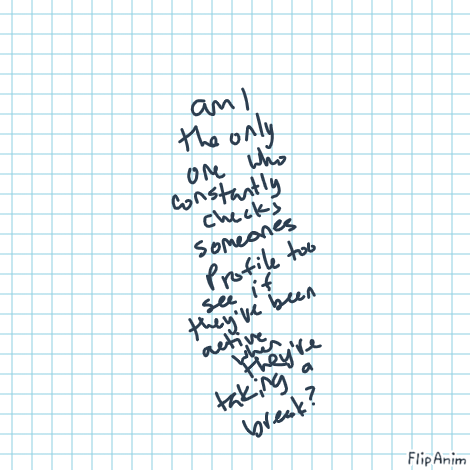 am I
the only
one who
constantly
checks
someones
profile too
see if
they've been
active
when
they're
taking a
break?
FlipAnim